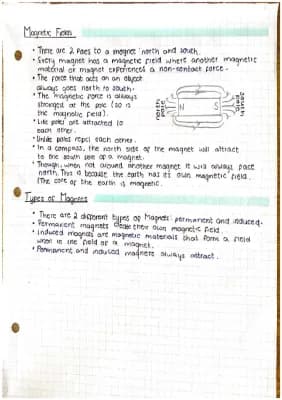 Magnetic Fields
• There are 2 Poles to a magnet: north and south.
• Every magnet has a magnetic field where another magnetic
material or magnet experiences a non-contact force.
• The force that acts on an object
always goes north to south.
• The magnetic force is always
strongest at the pole (so is
the magnetic field).
• Like poles are attracted to
each other.
• Unlike poles repel each other.
• In a compass, the north side of the magnet will attract
to the south side of a magnet.
• Though, when not around another magnet it will always face
north. This is because the earth has its own magnetic field.
(The core of the earth is magnetic.
north pole
N
S
south pole
Types of Magnets
• There are 2 different types of Magnets: permanent and induced.
• Permanent magnets create their own magnetic field.
• Induced magnets are magnetic materials that form a field
when in the field of a magnet.
• Permanent and induced magnets always attract.